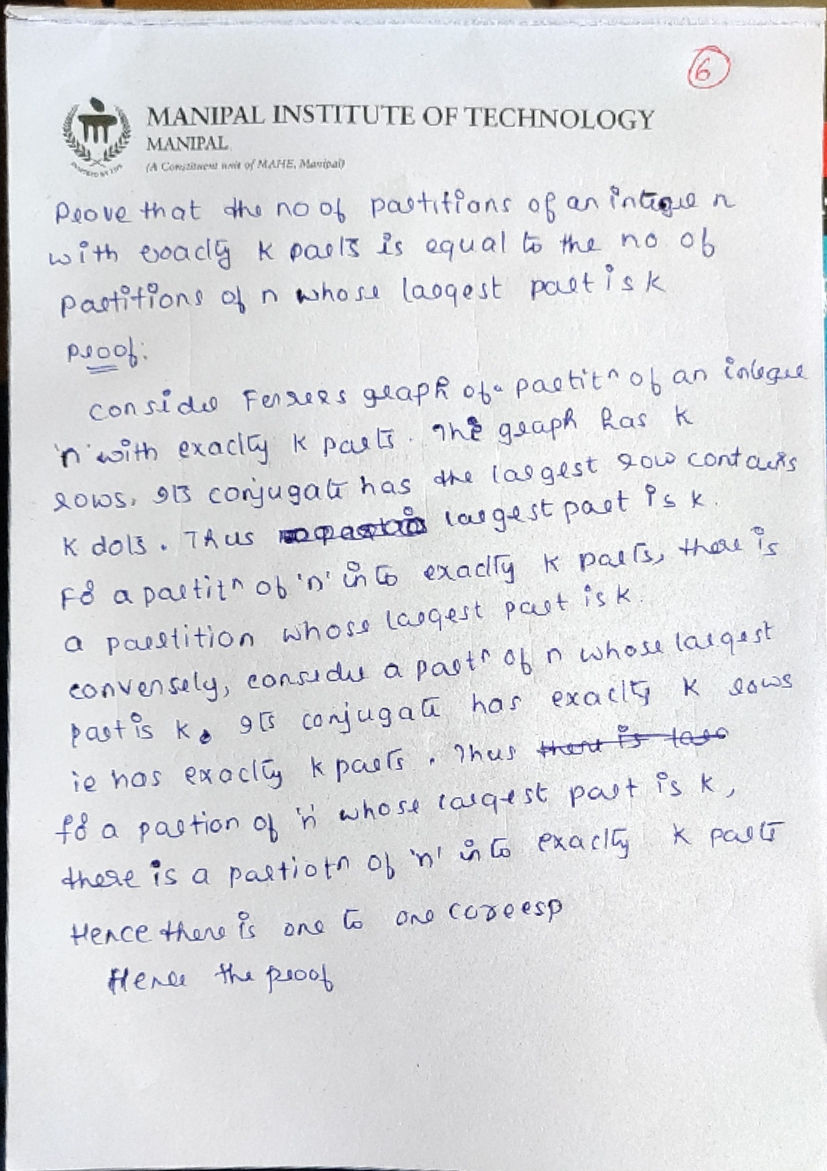 6
MANIPAL INSTITUTE OF TECHNOLOGY
MANIPAL
(A Constituent unit of MAHE, Manipal)
Prove that the no of partitions of an integer n
with exactly k parts is equal to the no of
partitions of n whose largest part is k
proof:
consider Ferrers graph of a partitn of an integer
'n' with exactly k parts. The graph has k
rows. Its conjugate has the largest row contains
k dots. Thus largest part is k.
For a partitn of 'n' into exactly k parts, there is
a partition whose largest part is k.
conversely, consider a partn of n whose largest
part is k. Its conjugate has exactly k rows
ie has exactly k parts. Thus there is
for a partion of 'n' whose largest part is k,
there is a partiotn of 'n' into exactly k parts
Hence there is one to one correesp
Hence the proof